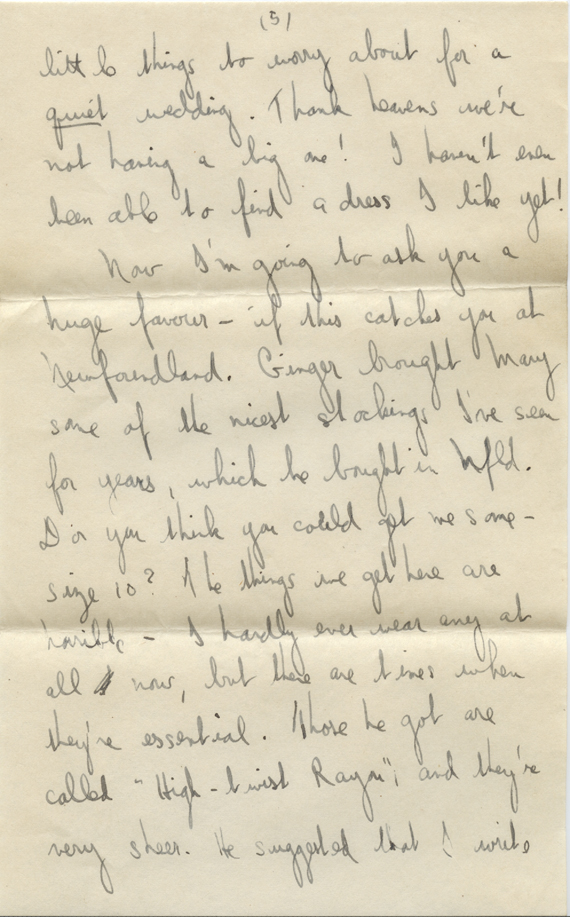 (5)
little things to worry about for a
quiet wedding. Thank heavens we're
not having a big one! I haven't even
been able to find a dress I like yet!
Now I'm going to ask you a
huge favour - if this catches you at
Newfoundland. Ginger brought Mary
some of the nicest stockings I've seen
for years, which he bought in Nfld.
Do you think you could get me some -
size 10? The things we get here are
horrible - I hardly ever wear any at
all now, but there are times when
they're essential. Those he got are
called "High-twist Rayon", and they're
very sheer. He suggested that I write